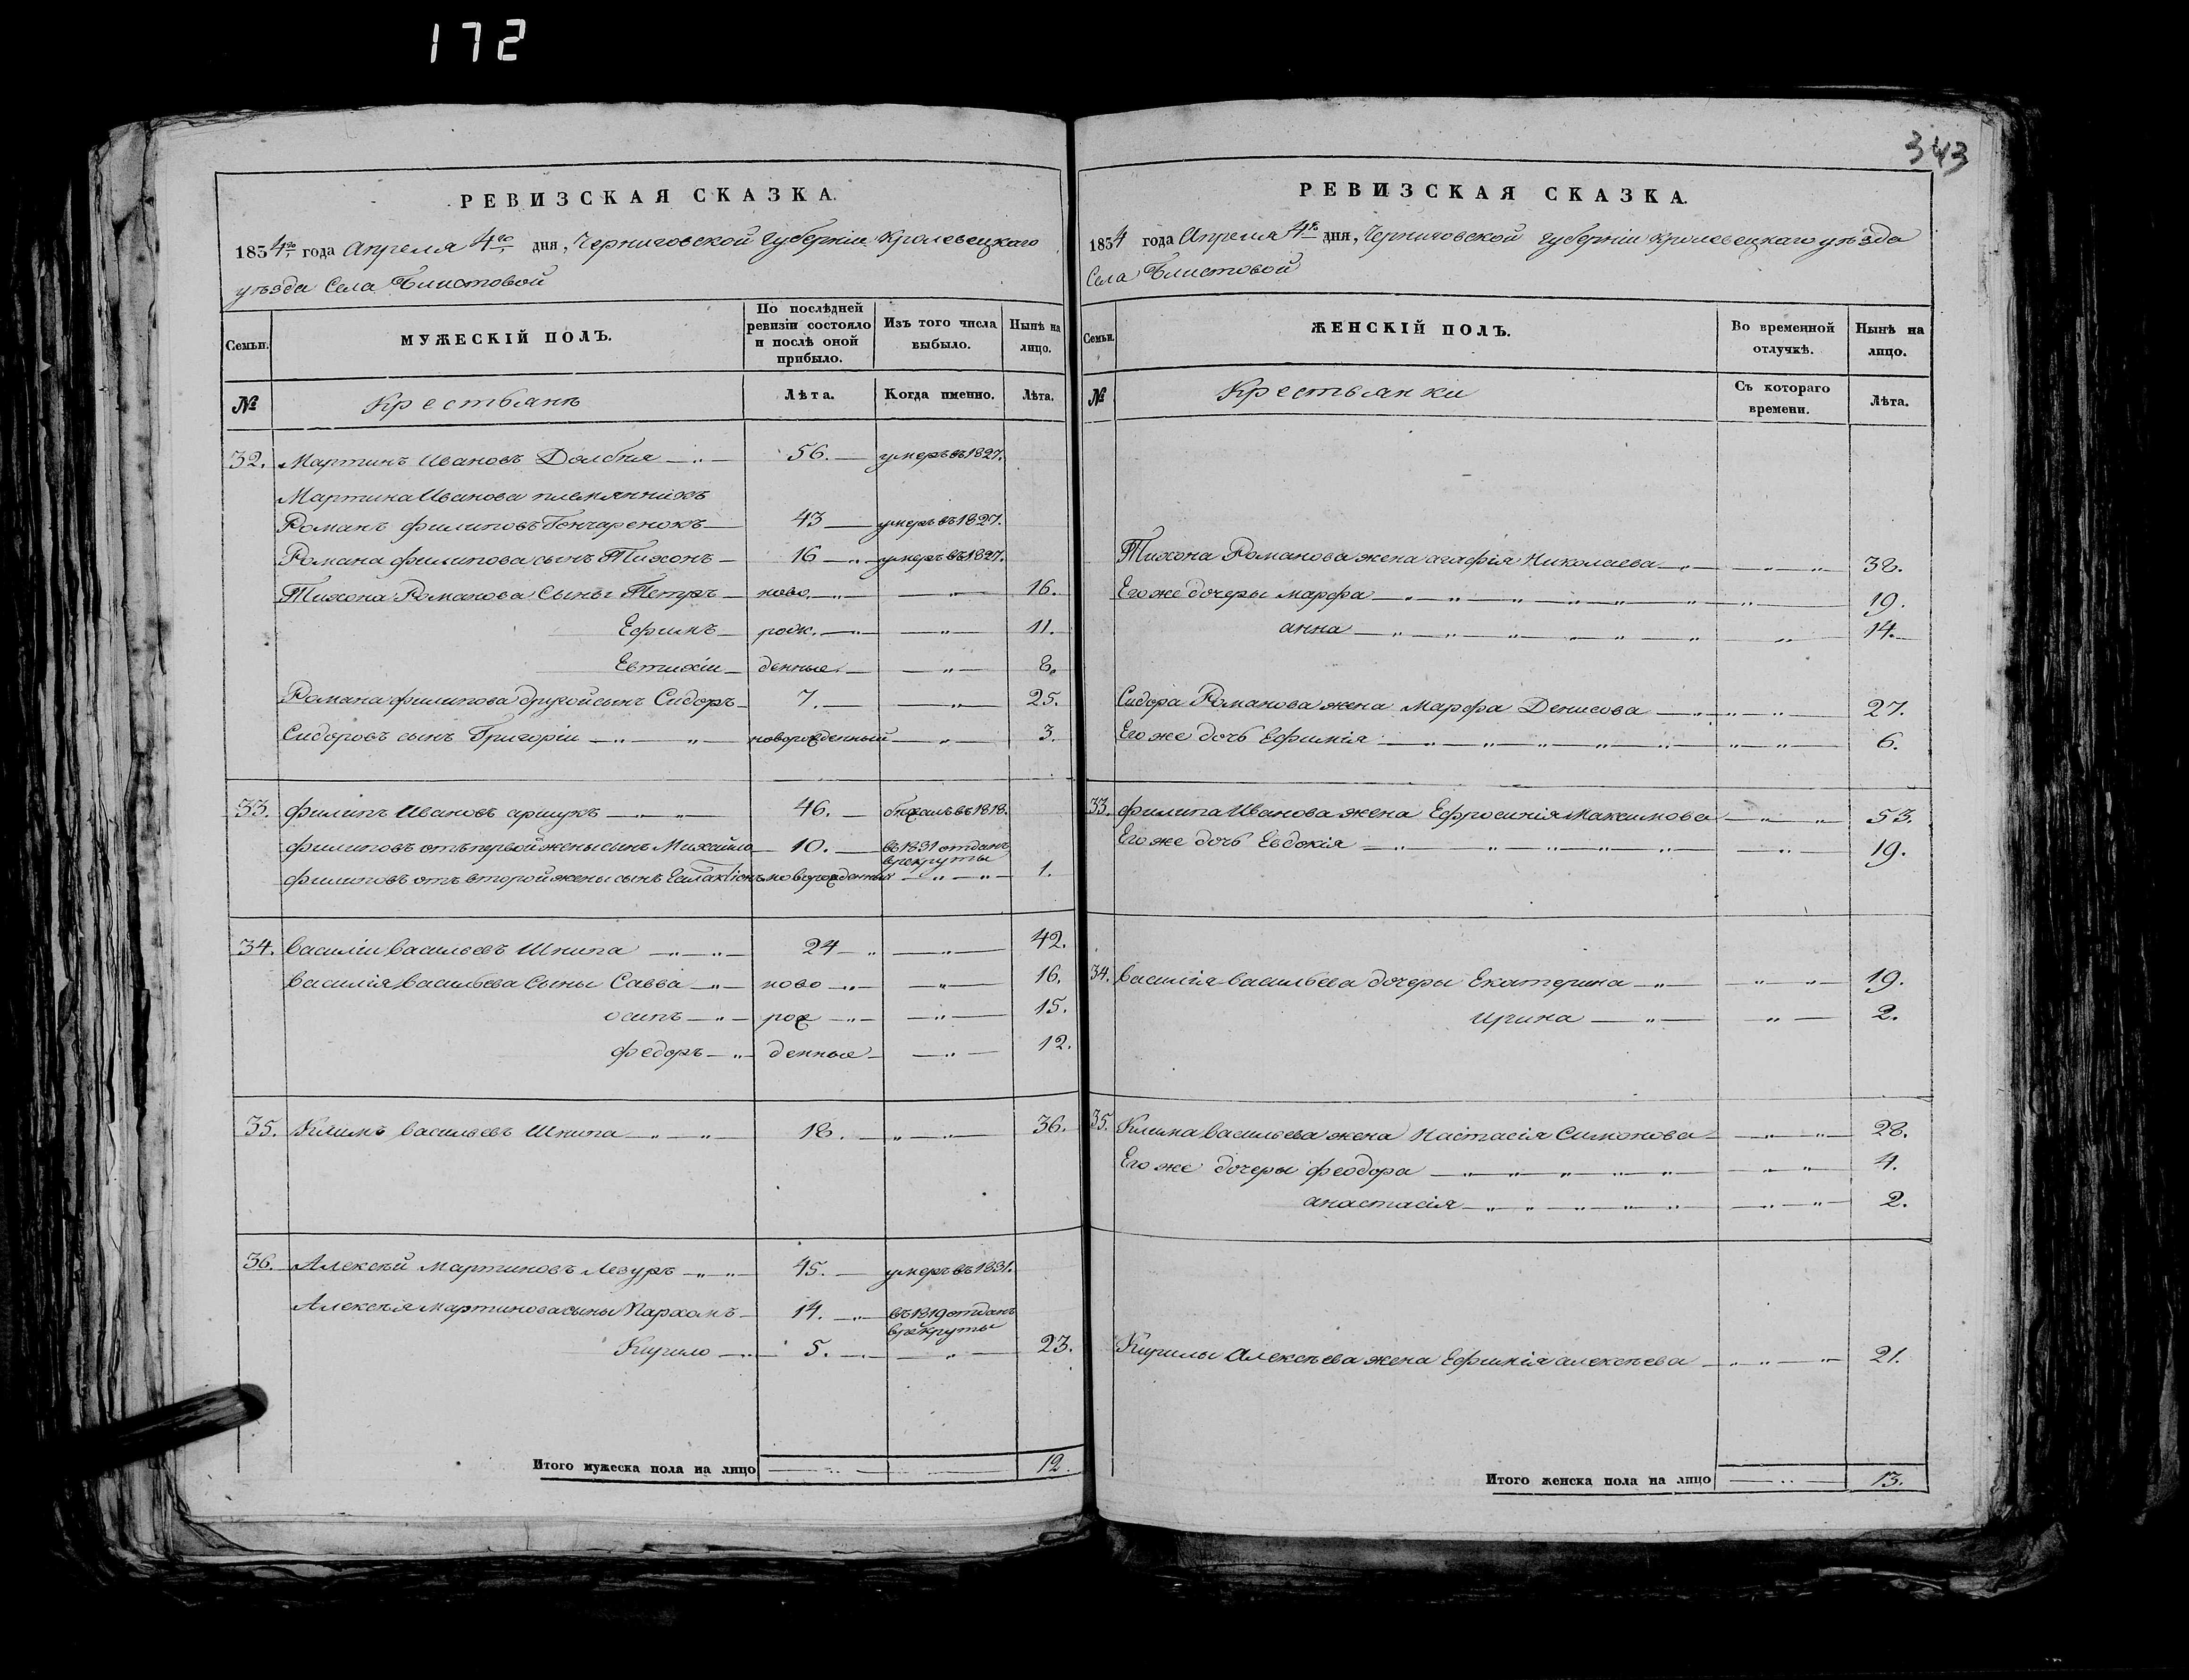 172
343
РЕВИЗСКАЯ СКАЗКА.
1834го года Апреля 4го дня, Черниговской губернiи Кролевецкаго
уѣзда Села Блистовой
Семьи.
МУЖЕСКIЙ ПОЛЪ.
По послѣдней ревизiи состояло и послѣ оной прибыло.
Изъ того числа выбыло.
Нынѣ на лицо.
№
Крестьянъ
Лѣта.
Когда именно.
Лѣта.
32. Мартинъ Ивановъ Долбня 56. умеръ въ 1827.
Мартина Иванова племянникъ
Романъ Филиповъ Гончаренокъ 43 умеръ въ 1827.
Романа Филипова сынъ Тихонъ 16 умеръ въ 1827.
Тихона Романова Сыны Петръ ново 16.
Ефимъ рож. 11.
Евтихiи денные 8.
Романа Филипова другой сынъ Сидоръ 7. 25.
Сидоровъ сынъ Григорiи новорожденный 3.
33. Филипъ Ивановъ 46. въ 1818.
Филиповъ отъ первой жены сынъ Михайло 10. въ 1831 отданъ
в рекруты
Филиповъ отъ второй жены сынъ новорожденный 1.
34. Василiи Васильевъ Шкипа 24 42.
Василiя Васильева Сыны Савва ново 16.
Осипъ рож 15.
Федоръ денные 12.
35. Климъ Васильевъ Шкипа 18. 36.
36. Алексѣй Мартиновъ Лазуръ 45. умеръ въ 1831.
Алексѣя Мартинова сыны Пархомъ 14. въ 1819 отданъ
в рекруты
Кирило 5. 23.
Итого мужеска пола на лицо 12.
РЕВИЗСКАЯ СКАЗКА.
1834 года Апреля 4го дня, Черниговской губернiи Кролевецкаго уѣзда
Села Блистовой
Семьи.
ЖЕНСКIЙ ПОЛЪ.
Во временной отлучкѣ.
Нынѣ на лицо.
№
Крестьянки
Съ котораго времени.
Лѣта.
Тихона Романова жена Агафiя Николаева 38.
Его же дочеры Марфа 19.
Анна 14.
Сидора Романова жена Марфа Денисова 27.
Его же дочь Ефимiя 6.
33. Филипа Иванова жена Ефросинiя Максимова 53.
Его же дочь Евдокiя 19.
34. Василiя Васильева дочеры Екатерина 19.
Ирина 2.
35. Клима Васильева жена Настасiя Симонова 28.
Его же дочеры Феодора 4.
Анастасiя 2.
Кирилы Алексѣева жена Ефимiя Алексѣева 21.
Итого женска пола на лицо 13.